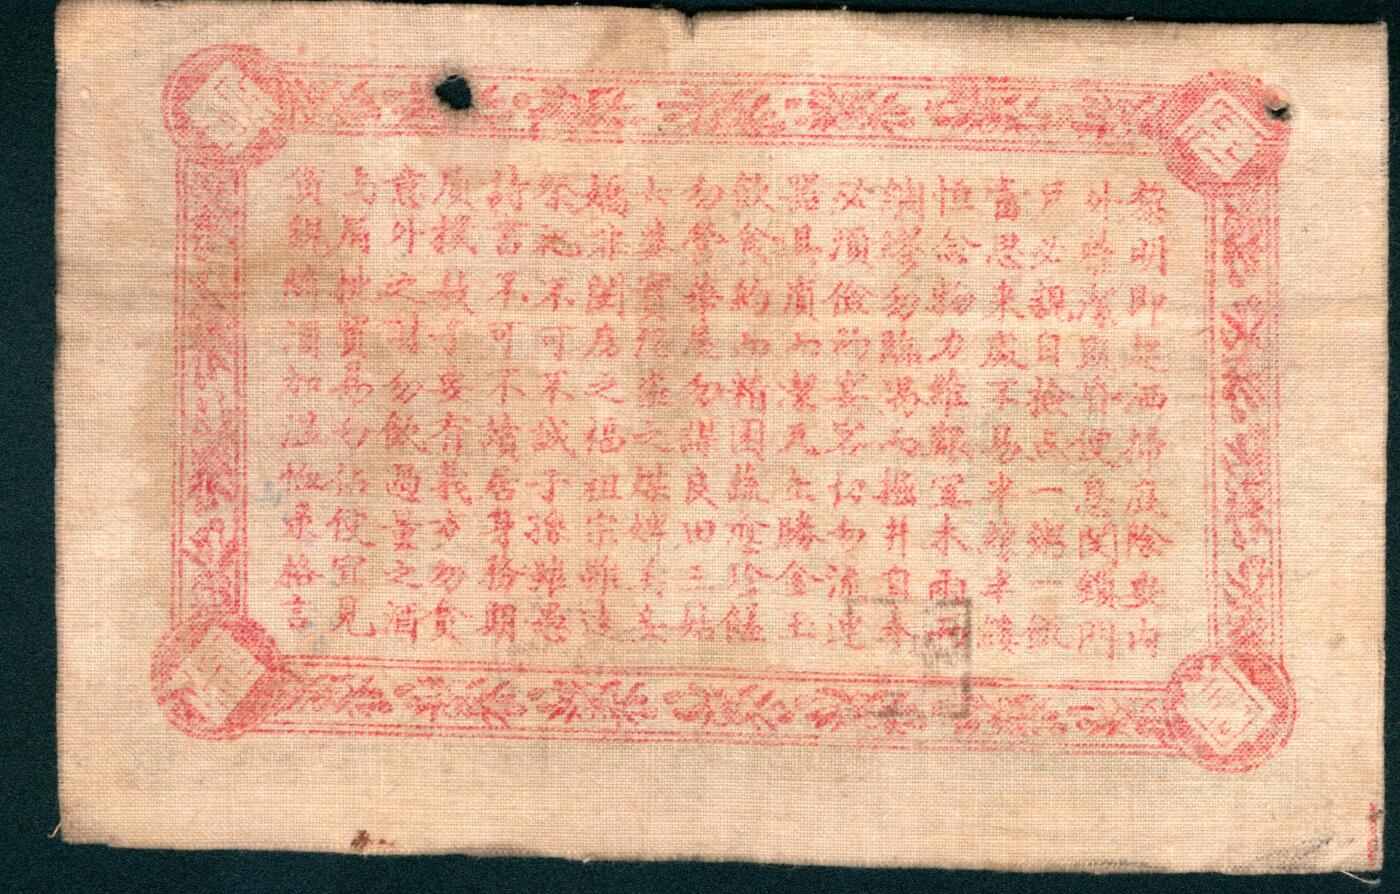 黎明即起洒掃庭除要内
外整潔既昏便息関鎖門
戶必親自檢点一粥一飯
當思来處不易半絲半縷
恒念物力維艱宜未雨而
綢繆勿臨渴而掘井自奉
必須儉約宴客切勿流連
器具質而潔瓦缶勝金玉
飲食約而精園蔬愈珍饈
勿營華屋勿謀良田三姑
六婆實淫盗之媒婢美妾
嬌非閨房之福祖宗雖遠
祭祀不可不誠子孫雖愚
詩書不可不讀居身務期
質樸教子要有義方勿貪
意外之財勿飲過量之酒
与肩挑貿易勿佔便宜見
貧親隣須加温恤录格言